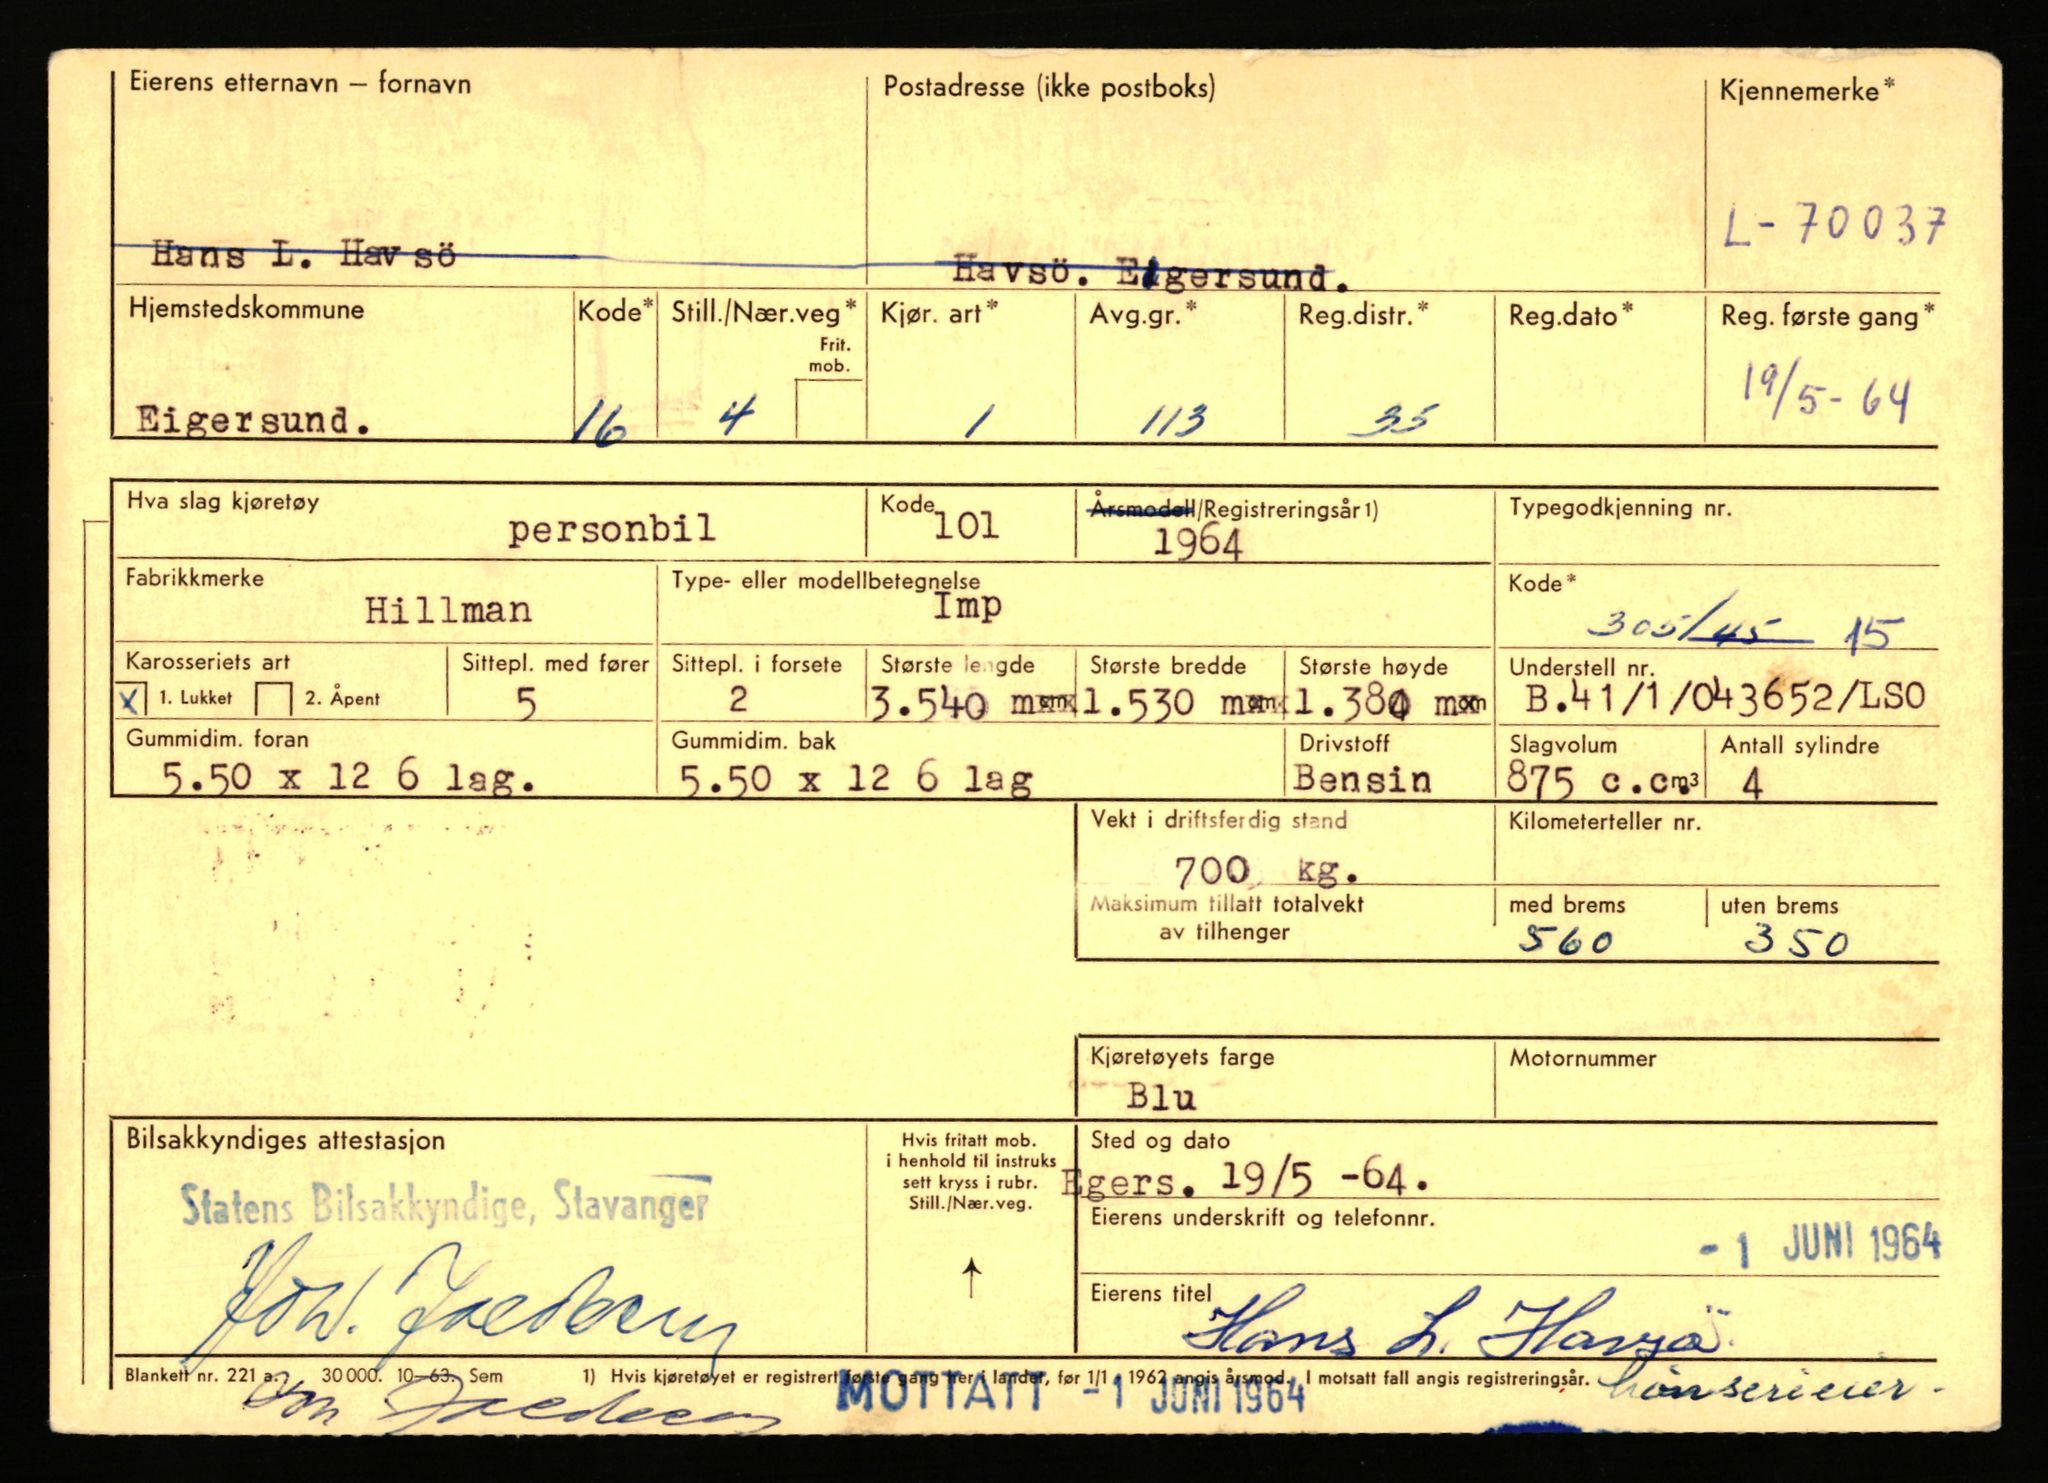 Eierens etternavn – fornavn
Postadresse (ikke postboks)
Kjennemerke*
L-70037
Hans L. Havsö
Havsö. Eigersund.
Hjemstedskommune
Kode*
Still./Nær.veg*
Frit.
mob.
Kjør. art*
Avg.gr.*
Reg.distr.*
Reg.dato*
Reg. første gang*
Eigersund.
16
4
1
113
35
19/5-64
Hva slag kjøretøy
personbil
Kode
101
Årsmodell/Registreringsår 1)
1964
Typegodkjenning nr.
Fabrikkmerke
Hillman
Type- eller modellbetegnelse
Imp
Kode*
305/45 15
Karosseriets art
X 1. Lukket 2. Åpent
Sittepl. med fører
5
Sittepl. i forsete
2
Største lengde
3.540 mm
Største bredde
1.530 mm
Største høyde
1.380 mm
Understell nr.
B.41/1/043652/LSO
Gummidim. foran
5.50 x 12 6 lag.
Gummidim. bak
5.50 x 12 6 lag
Drivstoff
Bensin
Slagvolum
875 c.c. m³
Antall sylindre
4
Vekt i driftsferdig stand
700 kg.
Kilometerteller nr.
Maksimum tillatt totalvekt
av tilhenger
med brems
560
uten brems
350
Kjøretøyets farge
Blu
Motornummer
Bilsakkyndiges attestasjon
Statens Bilsakkyndige, Stavanger
Hvis fritatt mob.
i henhold til instruks
sett kryss i rubr.
Still./Nær.veg.
↑
Sted og dato
Egers. 19/5 -64.
Eierens underskrift og telefonnr.
-1 JUNI 1964
Eierens titel
Hans L. Havsö.
Blankett nr. 221 a. 30000. 10–63. Sem
1) Hvis kjøretøyet er registrert første gang her i landet, før 1/1 1962 angis årsmod. I motsatt fall angis registreringsår.
MOTTATT -1 JUNI 1964